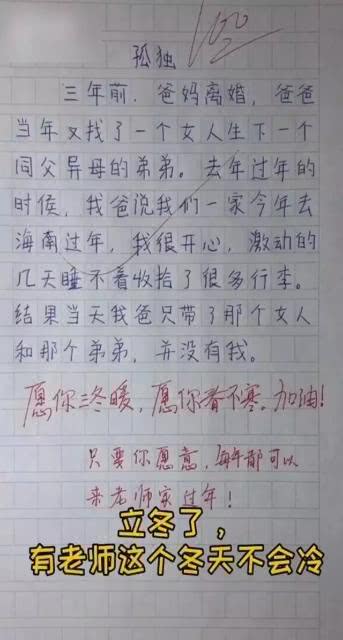 100
孤独
三年前,爸妈离婚,爸爸
当年又找了一个女人生下一个
同父异母的弟弟。去年过年的
时候,我爸说我们一家今年去
海南过年,我很开心,激动的
几天睡不着收拾了很多行李。
结果当天我爸只带了那个女人
和那个弟弟,并没有我。
愿你三冬暖,愿你春不寒。加油!
只要你愿意,每年都可以
来老师家过年!
立冬了,
有老师这个冬天不会冷